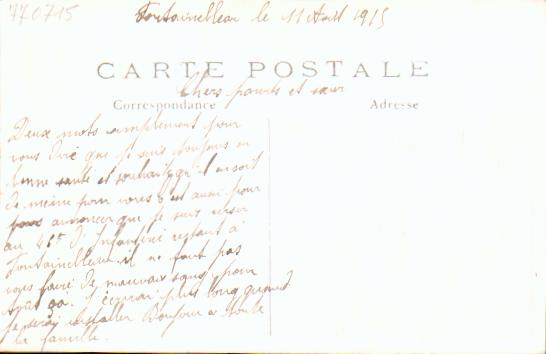 770715
Fontainebleau le 11 Août 1915
CARTE POSTALE
Chers parents et sœur
Correspondance
Adresse
Deux mots simplement pour
vous dire que je suis toujours en
bonne santé et souhaite qu'il en soit
de meme pour vous c'est aussi pour
vous annoncer que je suis verser
au 46e d'Infanterie restant à
Fontainebleau il ne faut pas
vous faire de mauvais sang pour
tout ça. J'écrirai plus long quand
je serai installer Bonjour a toute
la famille.